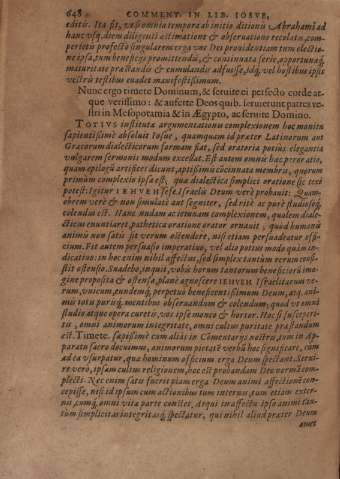 648 COMMENT. IN LIB. IOSVE,
editis. Ita sit, vt omnia tempora ab initio ditionis Abrahami ad
hanc vsq; diem diligenti æstimatione & obseruatione recolata, com-
pertum profectò singularem erga vos Dei prouidentiam tum electio-
ne ipsa, tum beneficijs promittendis, & continuata serie, ac opportunaq;
maturitate præstandis & cumulandis adfuisse, idq; vel hostibus ipsis
vestris testibus euadet manifestissimum.
Nunc ergo timete Dominum, & seruite ei perfecto corde at-
que verissimo: & auferte Deos quib. seruierunt patres ve-
stri in Mesopotamia & in Ægypto, ac seruite Domino.
TOTIVS institutæ argumentationis complexionem hoc monitu
sapientissimè absoluit Iosue, quamquam id præter Latinorum aut
Græcorum dialecticorum formam fiat, sed oratoria potius elegantia
vulgarem sermonis modum excellat. Est autem omnis hæc peroratio,
quam epilogũ artifices dicunt, aptissima cõcinnata membris, quorum
primùm complexio ipsa est, qua dialectica simplici oratione sic iri
potest: Igitur IEHVEH sese Israelis Deum verè probauit: Quam-
obrem verè & non simulatè aut segniter, sed ritè ac purè studioseq;
colendus est. Hanc mẽdam ac ieiunam complexionem, qualem diale-
cticus enuntiaret, pathetica oratione orator ornauit, quòd humanis
animis non satis sit verum ostendere, nisi etiam persuadeatur effi-
cium. Fit autem persuasio imperatiuo, vel alio potius modo quàm in-
dicatiuo: in hoc enim nihil affectus, sed simplex tantùm rerum consi-
stit ostensio. Suadebo, inquit, vobis horum tantorum beneficiorũ imo-
gine proposita & ostensa, planè agnoscere IEHVEH Israelitarum ve-
rum, vnicum, eundemq; perpetuò beneficentissimum Deum, atq; ani-
mis totis purisq; mentibus obseruandum & colendum; quod vt omni
studio atque opera curetis, vos ipse moneo & hortor. Hac si suscepe-
tis, omni animorum integritate, omni cultus puritate præstandum
est. Timete. sæpissimè cum aliàs in Comentarijs nostris, tum in Ap-
paratu sacro docuimus, animorum pietatẽ verbũ hoc significare, cùm
ad ea vsurpatur, quæ hominum officium erga Deum spectant. Serui-
re verò, ipsam cultus religionem, hoc est probandam Deo normã com-
plecti: Nec enim satis fuerit piam erga Deum animi affectionẽ con-
cepisse, nisi id ipsum cum actionibus tum internus, tum etiam exter-
nis, cumq; omni vitæ parte constet. Atqui in affectu ipso animi tan-
tùm simplicitas integritasq; spectatur, qui nihil aliud præter Deum
amet